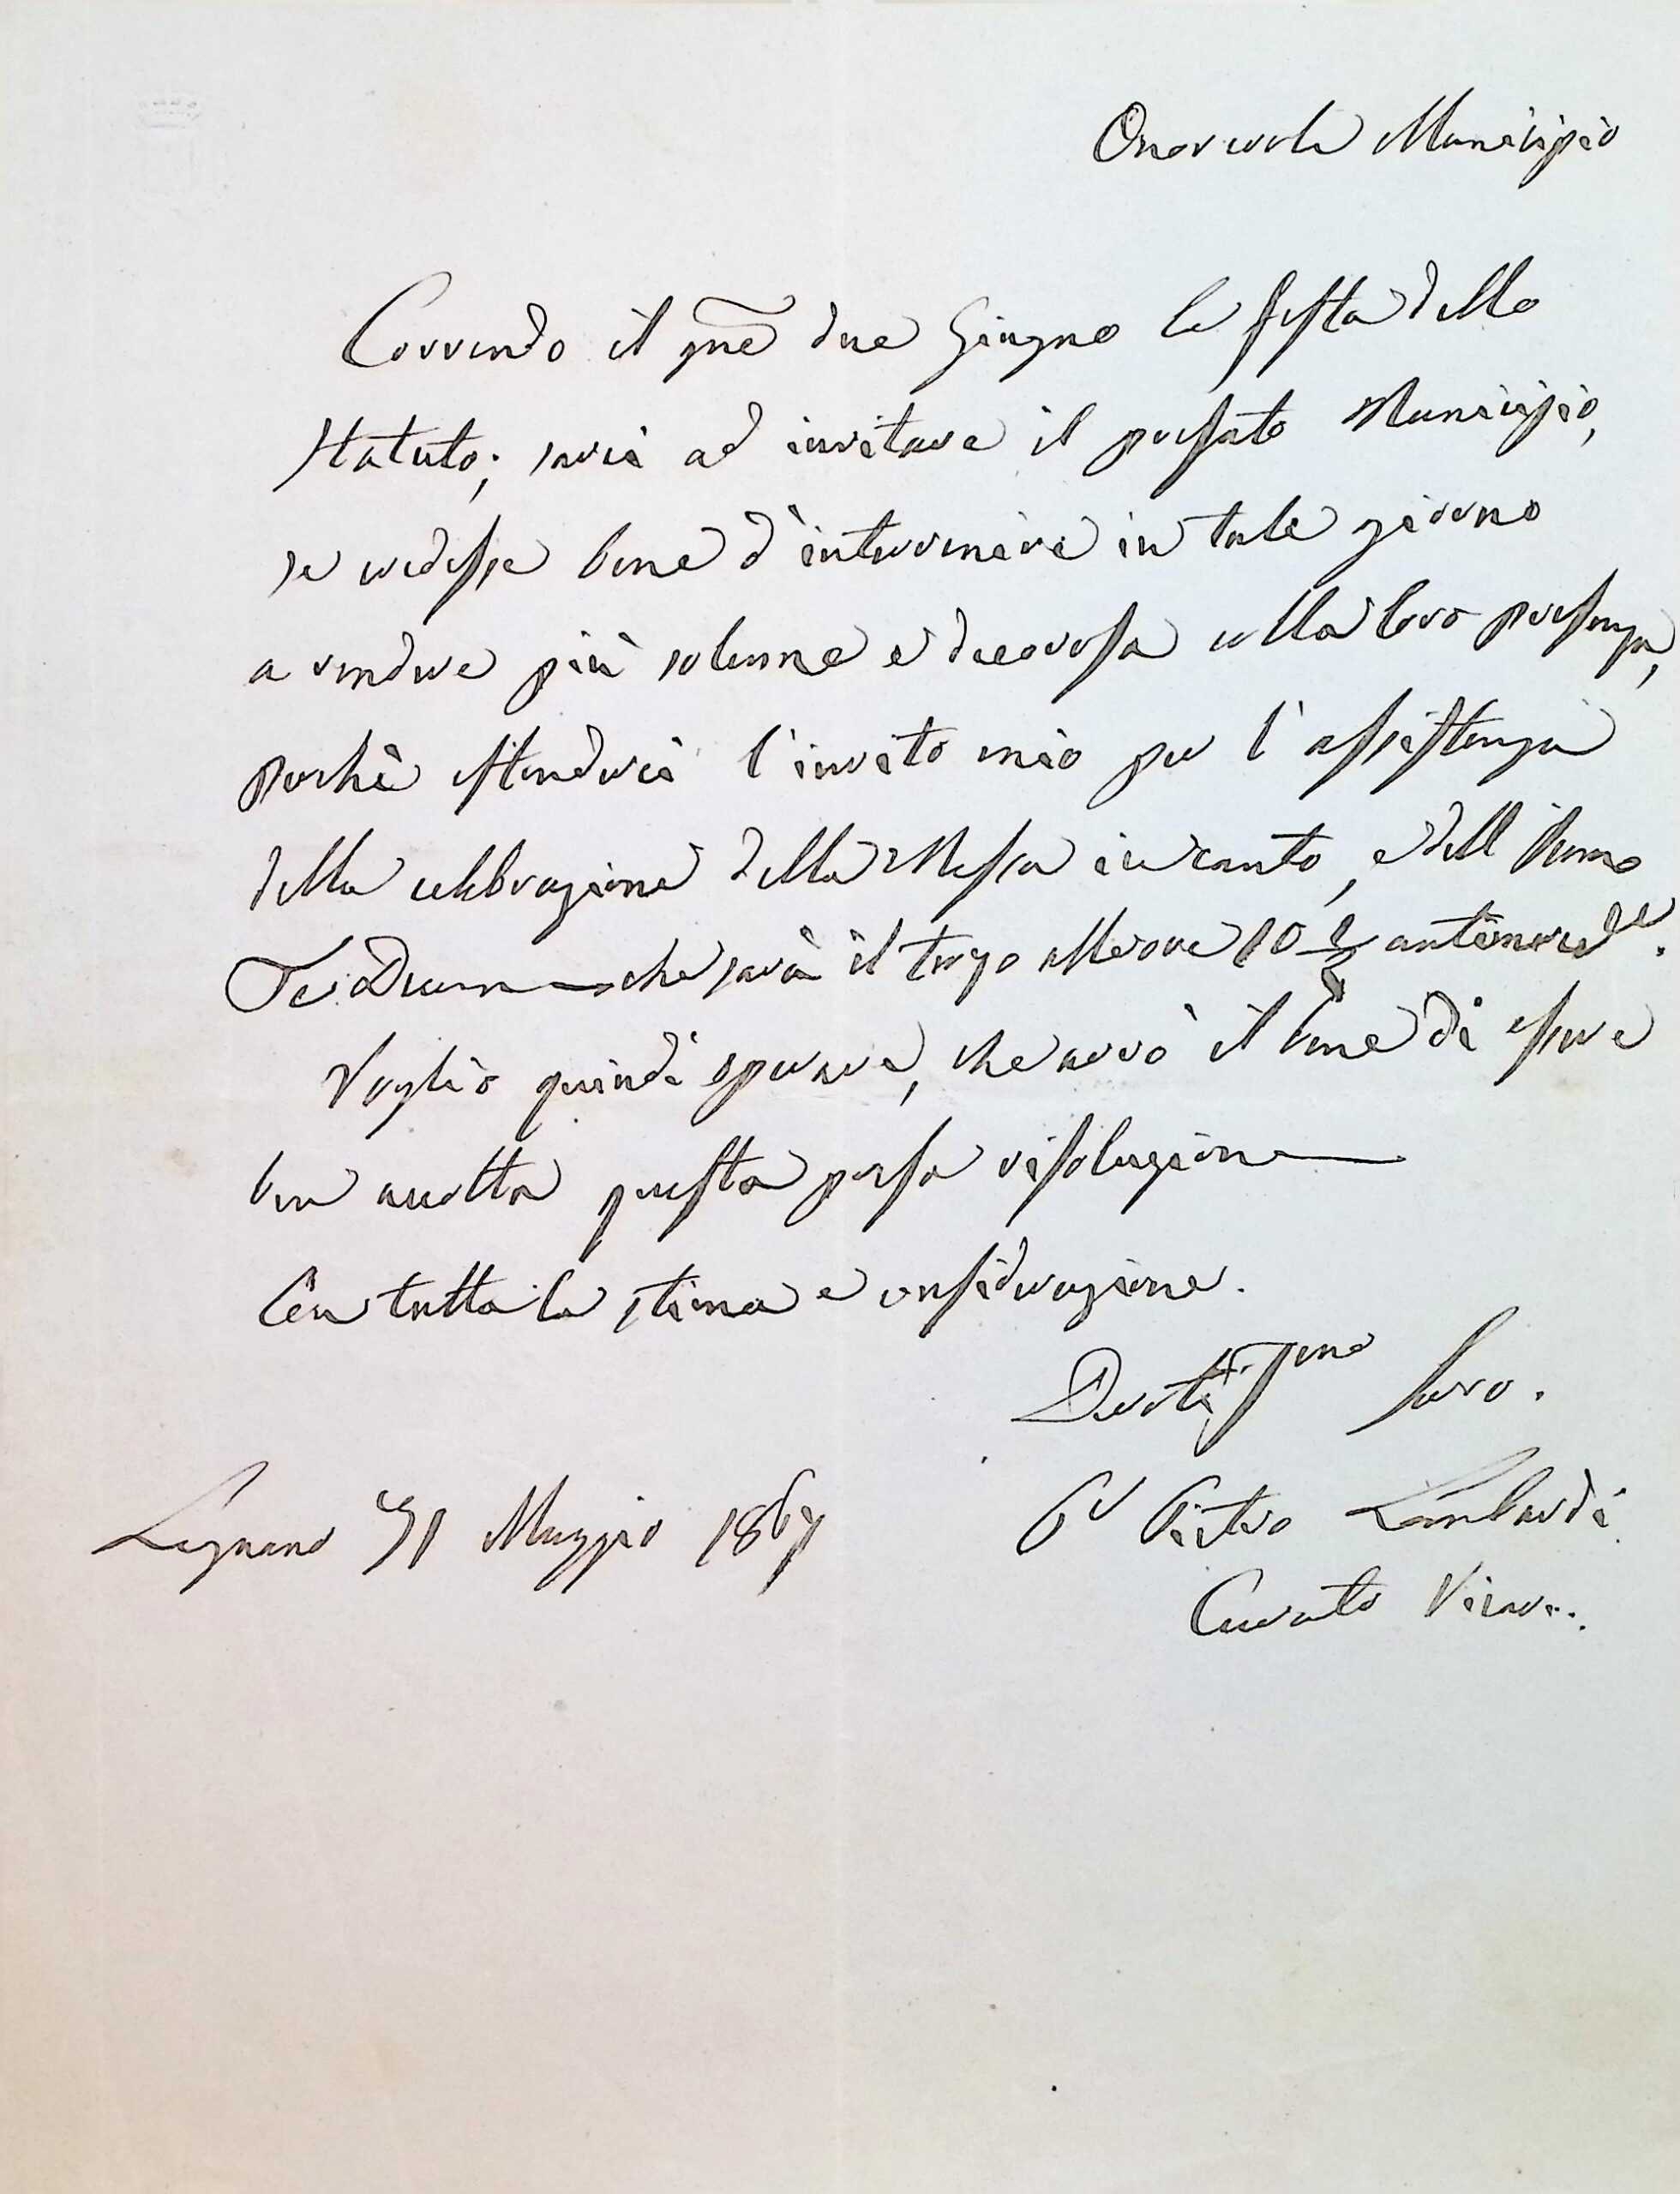 Onorevole Municipio
Correndo il pne due Giugno la festa dello
Statuto; sarei ad invitare il prefato Municipio,
se credesse bene d'intervenire in tale giorno
a rendere più solenne e decorosa colla loro presenza,
perchè estenderei l'invito mio per l'assistenza
della celebrazione della Messa in canto, e dell'Inno
Te Deum che sarà il terzo alle ore 10 1/2 antimerid.e.
Voglio quindi sperare, che avrò il bene di essere
ben accetta questa presa risoluzione
Con tutta la stima e considerazione.
Devotissmo Servo.
Legnano 31 Maggio 1867
Pietro Lombardi
Curato Vicar..